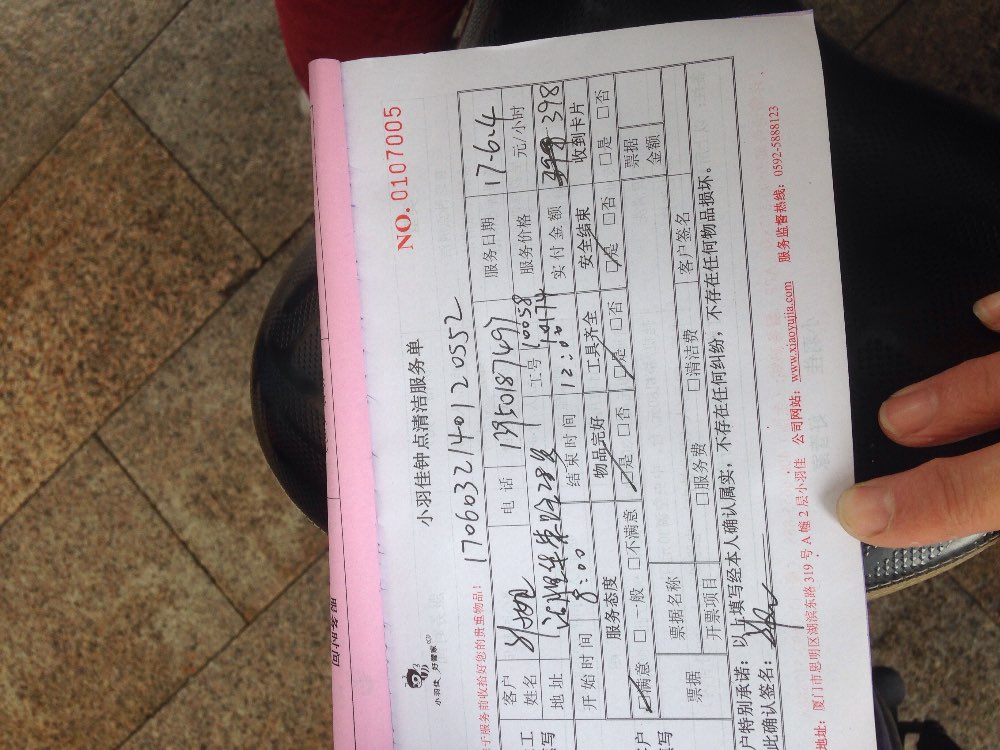 小羽佳 好管家
小羽佳钟点清洁服务单
NO. 0107005
于服务前收拾好您的贵重物品:
170603214012 0552
客户姓名
电话 13950187497
服务日期 17-6-4
工号 10058
10174
服务价格 元/小时
地址
实付金额 398
开始时间 8:00
结束时间 12:00
服务态度 物品完好 工具齐全 安全结束 收到卡片
☑满意 □一般 □不满意 ☑是 □否 ☑是 □否 ☑是 □否 □是 □否
票据 票据名称
票据金额
开票项目 □服务费 □清洁费 客户签名
户特别承诺:以上填写经本人确认属实,不存在任何纠纷,不存在任何物品损坏。
此确认签名:
地址:厦门市思明区湖滨东路319号A幢2层小羽佳 公司网站:www.xiaoyujia.com 服务监督热线:0592-5888123
服务时间